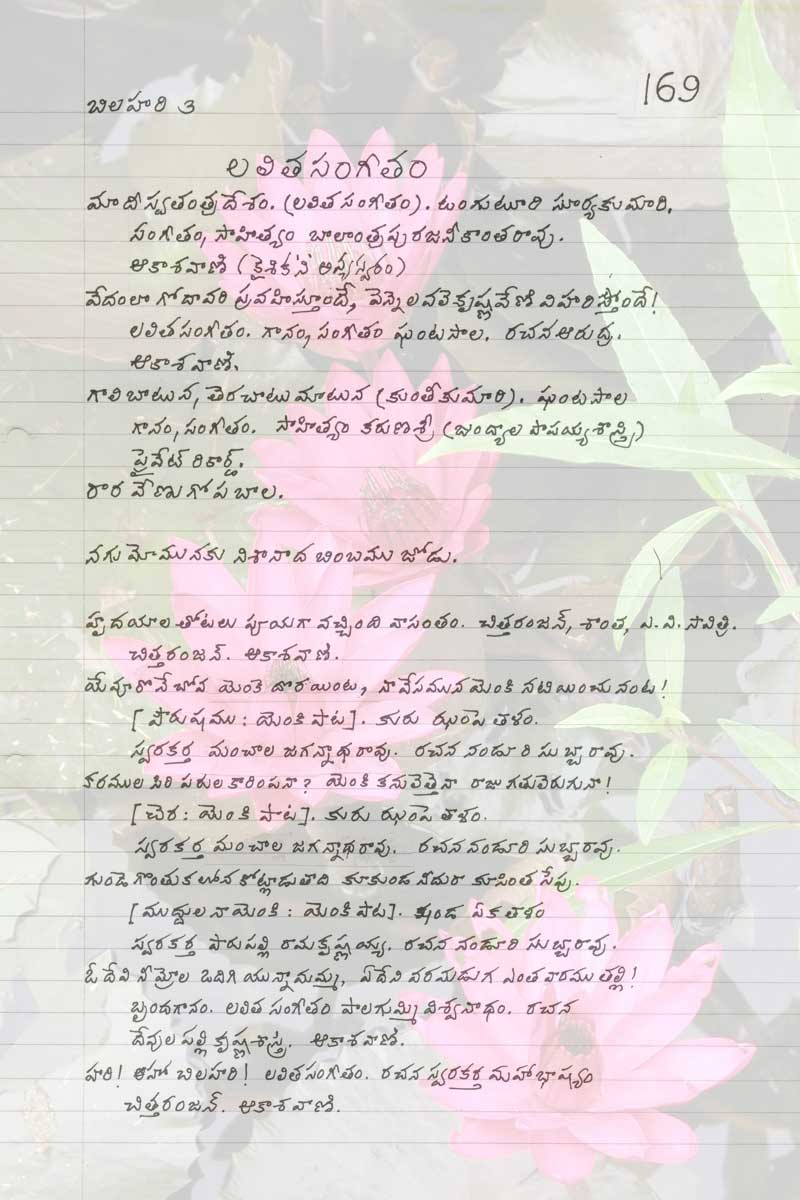 169
బిలహరి 3
లలితసంగీతం
మాదీ స్వతంత్ర దేశం. (లలిత సంగీతం). టంగుటూరి సూర్యకుమారి.
సంగీతం, సాహిత్యం బాలాంత్రపు రజనీకాంతరావు.
ఆకాశవాణి (కైశిక 'ని' అన్యస్వరం)
వేదంలా గోదావరి ప్రవహిస్తూందే, వెన్నెలవలె కృష్ణవేణి విహరిస్తోందే!
లలితసంగీతం. గానం, సంగీతం ఘంటసాల. రచన ఆరుద్ర.
ఆకాశవాణి.
గాలిబాటున, తెరచాటుమాటున (కుంతీకుమారి). ఘంటసాల
గానం, సంగీతం. సాహిత్యం కరుణశ్రీ (జంధ్యాల పాపయ్యశాస్త్రి)
ప్రైవేట్ రికార్డ్.
రార వేణు గోపబాల.
నగు మోమునకు నిశానాద బింబము జోడు.
హృదయాల తోటలు పూయగా వచ్చింది వాసంతం. చిత్తరంజన్, శాంత, ఎ.వి.సావిత్రి.
చిత్తరంజన్. ఆకాశవాణి.
యేవూరొనేబోన యెంకి దొరయింట, నావేసమున యెంకి నటియించునంట!
[పౌరుషము : యెంకి పాట]. కురు ఝంపె తాళం.
స్వరకర్త మంచాల జగన్నాధరావు. రచన నండూరి సుబ్బారావు.
కరముల సిరి పరులకారింపనా? యెంకి కనులెత్తైనా రాజు గతులెరుగునా!
[చెర : యెంకి పాట]. కురు ఝంపె తాళం.
స్వరకర్త మంచాల జగన్నాధరావు. రచన నండూరి సుబ్బారావు.
గుండె గొంతుకలోన కొట్లాడుతాది కూకుండ నీదురా కూసింత సేపు.
[ముద్దుల నాయెంకి : యెంకి పాట]. ఖండ ఏక తాళం
స్వరకర్త పారుపల్లి రామకృష్ణయ్య. రచన నండూరి సుబ్బారావు.
ఓ దేవి నీమ్రోల ఒదిగి యున్నామమ్మ, ఏదేవి వరమడుగ ఎంతవారము తల్లి!
బృందగానం. లలిత సంగీతం పాలగుమ్మి విశ్వనాథం. రచన
దేవులపల్లి కృష్ణశాస్త్రి. ఆకాశవాణి.
హరి! ఆహా బిలహరి! లలితసంగీతం. రచన స్వరకర్త మహాభాష్యం
చిత్తరంజన్. ఆకాశవాణి.